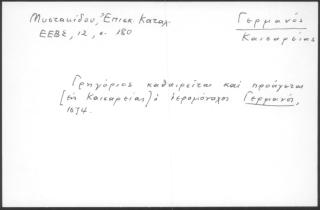 Μυστακίδου, Ἐπισκ. Καταλ.
ΕΕΒΣ, 12, σ. 180
Γερμανός
Καισαρείας
Γρηγόριος καθαιρεῖται καὶ προάγεται
[ἐν Καισαρείᾳ] ὁ ἱερομόναχος Γερμανός,
1674.